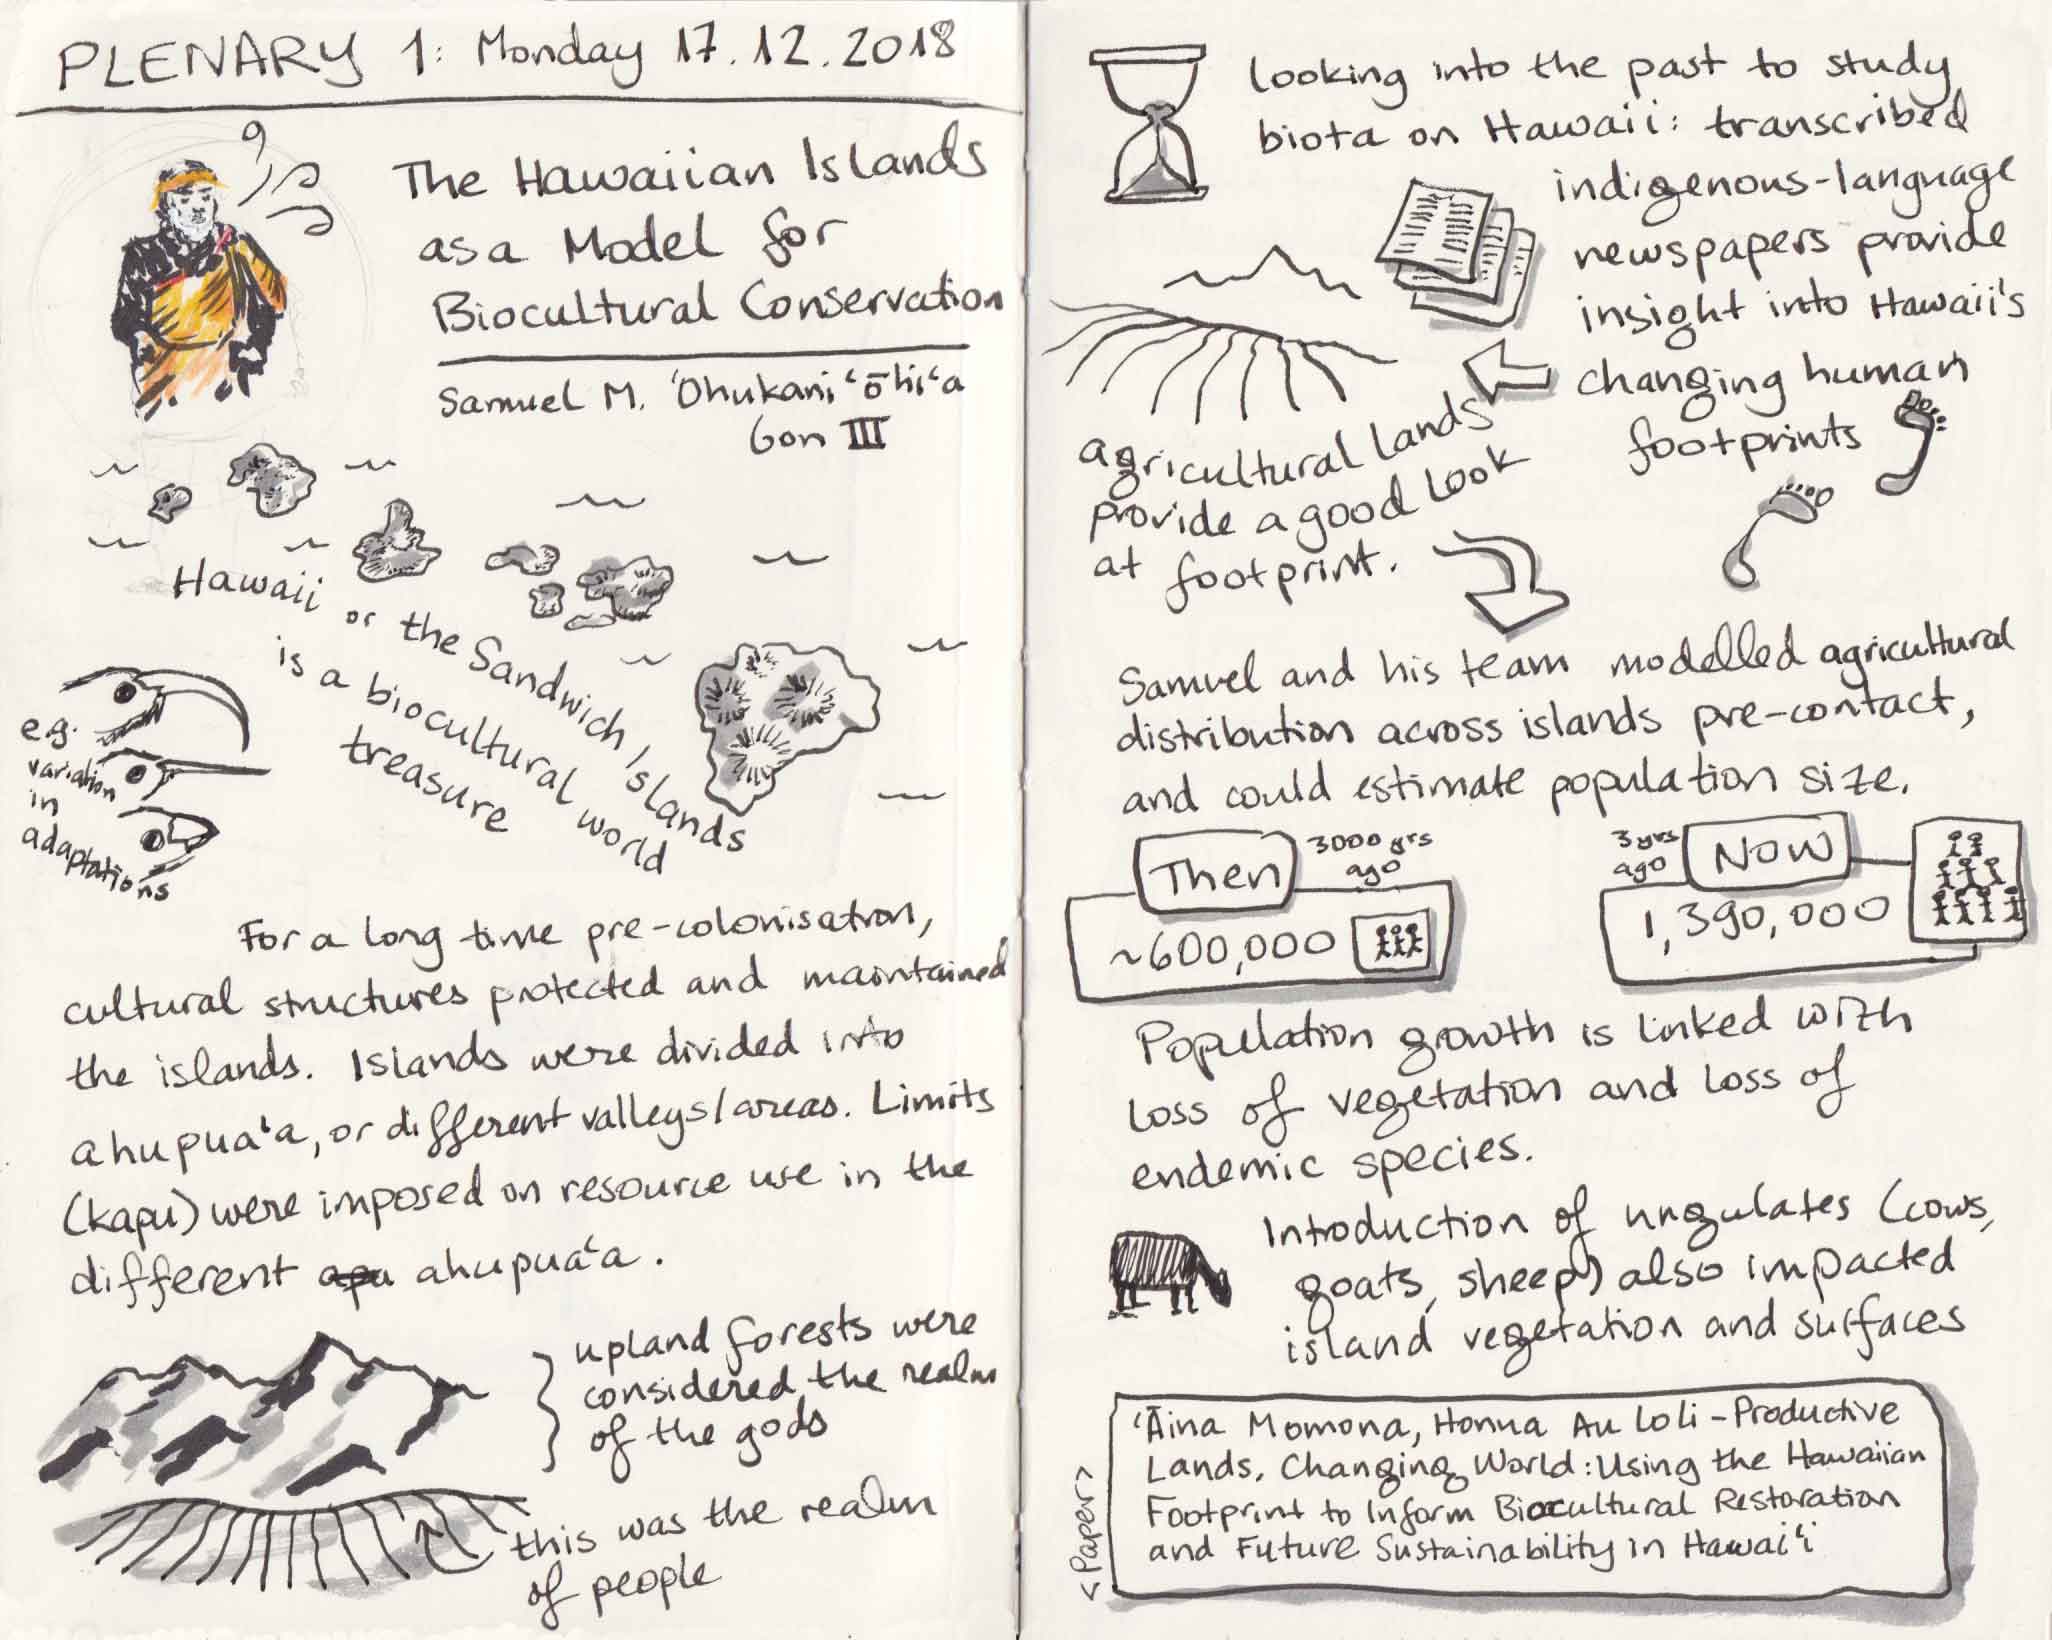 PLENARY 1: Monday 17.12.2018
The Hawaiian Islands
as a Model for
Biocultural Conservation
Samuel M. ʻOhukaniʻōhiʻa
Gon III
Hawaii or the Sandwich Islands
is a biocultural world
treasure
e.g.
variation
in
adaptations
For a long time pre-colonisation,
cultural structures protected and maintained
the islands. Islands were divided into
ahupuaʻa, or different valleys/areas. Limits
(kapu) were imposed on resource use in the
different apu ahupuaʻa.
upland forests were
considered the realm
of the gods
this was the realm
of people
looking into the past to study
biota on Hawaii: transcribed
indigenous-language
newspapers provide
insight into Hawaii's
changing human
footprints
agricultural lands
provide a good look
at footprint.
Samuel and his team modelled agricultural
distribution across islands pre-contact,
and could estimate population size.
Then 3000 yrs
ago
~600,000
3 yrs
ago Now
1,390,000
Population growth is linked with
loss of vegetation and loss of
endemic species.
Introduction of ungulates (cows,
goats, sheep) also impacted
island vegetation and surfaces
<Paper>
ʻĀina Momona, Honua Au Loli - Productive
Lands, Changing World: Using the Hawaiian
Footprint to Inform Biocultural Restoration
and Future Sustainability in Hawaiʻi